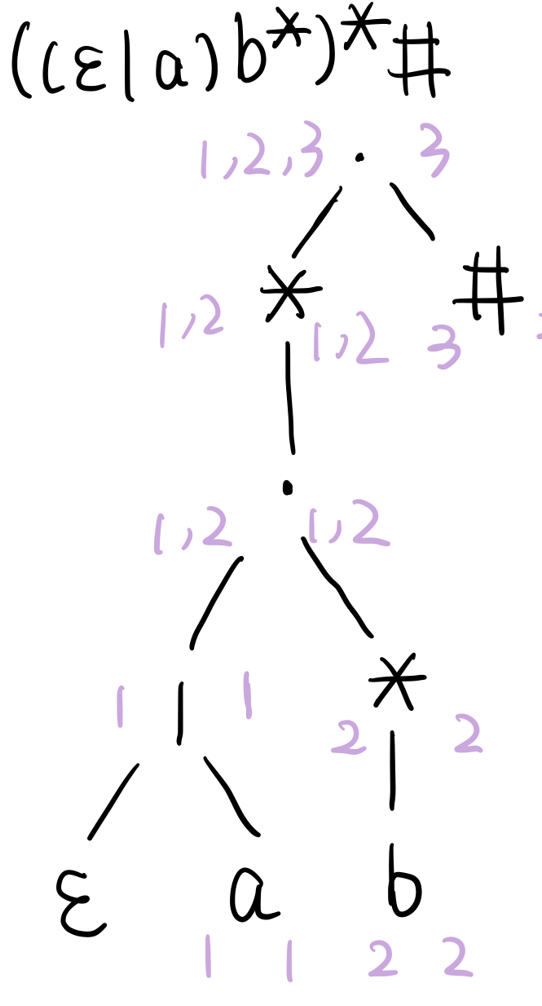 ((ε|a)b*)*#
1,2,3 · 3
* #
1,2 1,2 3
·
1,2 1,2
1 | 1 *
2 2
ε a b
1 1 2 2